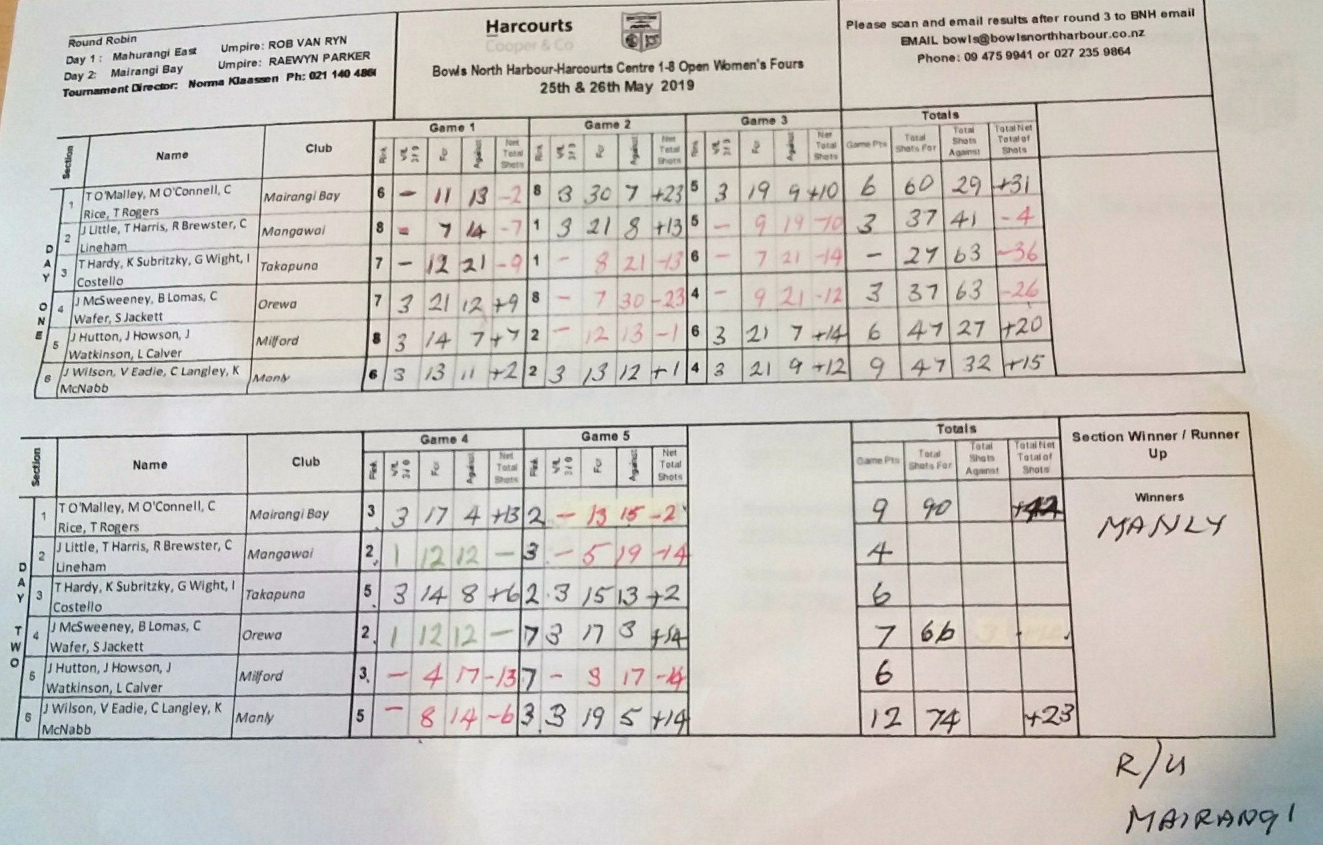 Round Robin
Day 1 : Mahurangi East Umpire: ROB VAN RYN
Day 2: Mairangi Bay Umpire: RAEWYN PARKER
Tournament Director: Norma Klaassen Ph: 021 140 486
Harcourts
Cooper & Co
Bowls North Harbour-Harcourts Centre 1-8 Open Women's Fours
25th & 26th May 2019
Please scan and email results after round 3 to BNH email
EMAIL bowls@bowlsnorthharbour.co.nz
Phone: 09 475 9941 or 027 235 9864
Game 1 Game 2 Game 3 Totals
Section Name Club Rink W/L 3/1/0 For Against Net Total Shots Rink W/L 3/1/0 For Against Net Total Shots Rink W/L 3/1/0 For Against Net Total Shots Game Pts Total Shots For Total Shots Against Total Net Total of Shots
DAY ONE
1 T O'Malley, M O'Connell, C Mairangi Bay 6 - 11 13 -2 8 3 30 7 +23 5 3 19 9 +10 6 60 29 +31
Rice, T Rogers
2 J Little, T Harris, R Brewster, C Mangawai 8 - 7 14 -7 1 3 21 8 +13 5 - 9 19 -10 3 37 41 -4
Lineham
3 T Hardy, K Subritzky, G Wight, I Takapuna 7 - 12 21 -9 1 - 8 21 -13 6 - 7 21 -14 - 27 63 -36
Costello
4 J McSweeney, B Lomas, C Orewa 7 3 21 12 +9 8 - 7 30 -23 4 - 9 21 -12 3 37 63 -26
Wafer, S Jackett
5 J Hutton, J Howson, J Milford 8 3 14 7 +7 2 - 12 13 -1 6 3 21 7 +14 6 47 27 +20
Watkinson, L Calver
6 J Wilson, V Eadie, C Langley, K Manly 6 3 13 11 +2 2 3 13 12 +1 4 3 21 9 +12 9 47 32 +15
McNabb
Game 4 Game 5 Totals Section Winner / Runner
Up
Section Name Club Rink W/L 3/1/0 For Against Net Total Shots Rink W/L 3/1/0 For Against Net Total Shots Game Pts Total Shots For Total Shots Against Total Net Total of Shots
Winners
MANLY
DAY TWO
1 T O'Malley, M O'Connell, C Mairangi Bay 3 3 17 4 +13 2 - 13 15 -2 9 90 +42
Rice, T Rogers
2 J Little, T Harris, R Brewster, C Mangawai 2 1 12 12 - 3 - 5 19 -14 4
Lineham
3 T Hardy, K Subritzky, G Wight, I Takapuna 5 3 14 8 +6 2 3 15 13 +2 6
Costello
4 J McSweeney, B Lomas, C Orewa 2 1 12 12 - 7 3 17 3 +14 7 66
Wafer, S Jackett
5 J Hutton, J Howson, J Milford 3 - 4 17 -13 7 - 3 17 -14 6
Watkinson, L Calver
6 J Wilson, V Eadie, C Langley, K Manly 5 - 8 14 -6 3 3 19 5 +14 12 74 +23
McNabb
R/U
MAIRANGI